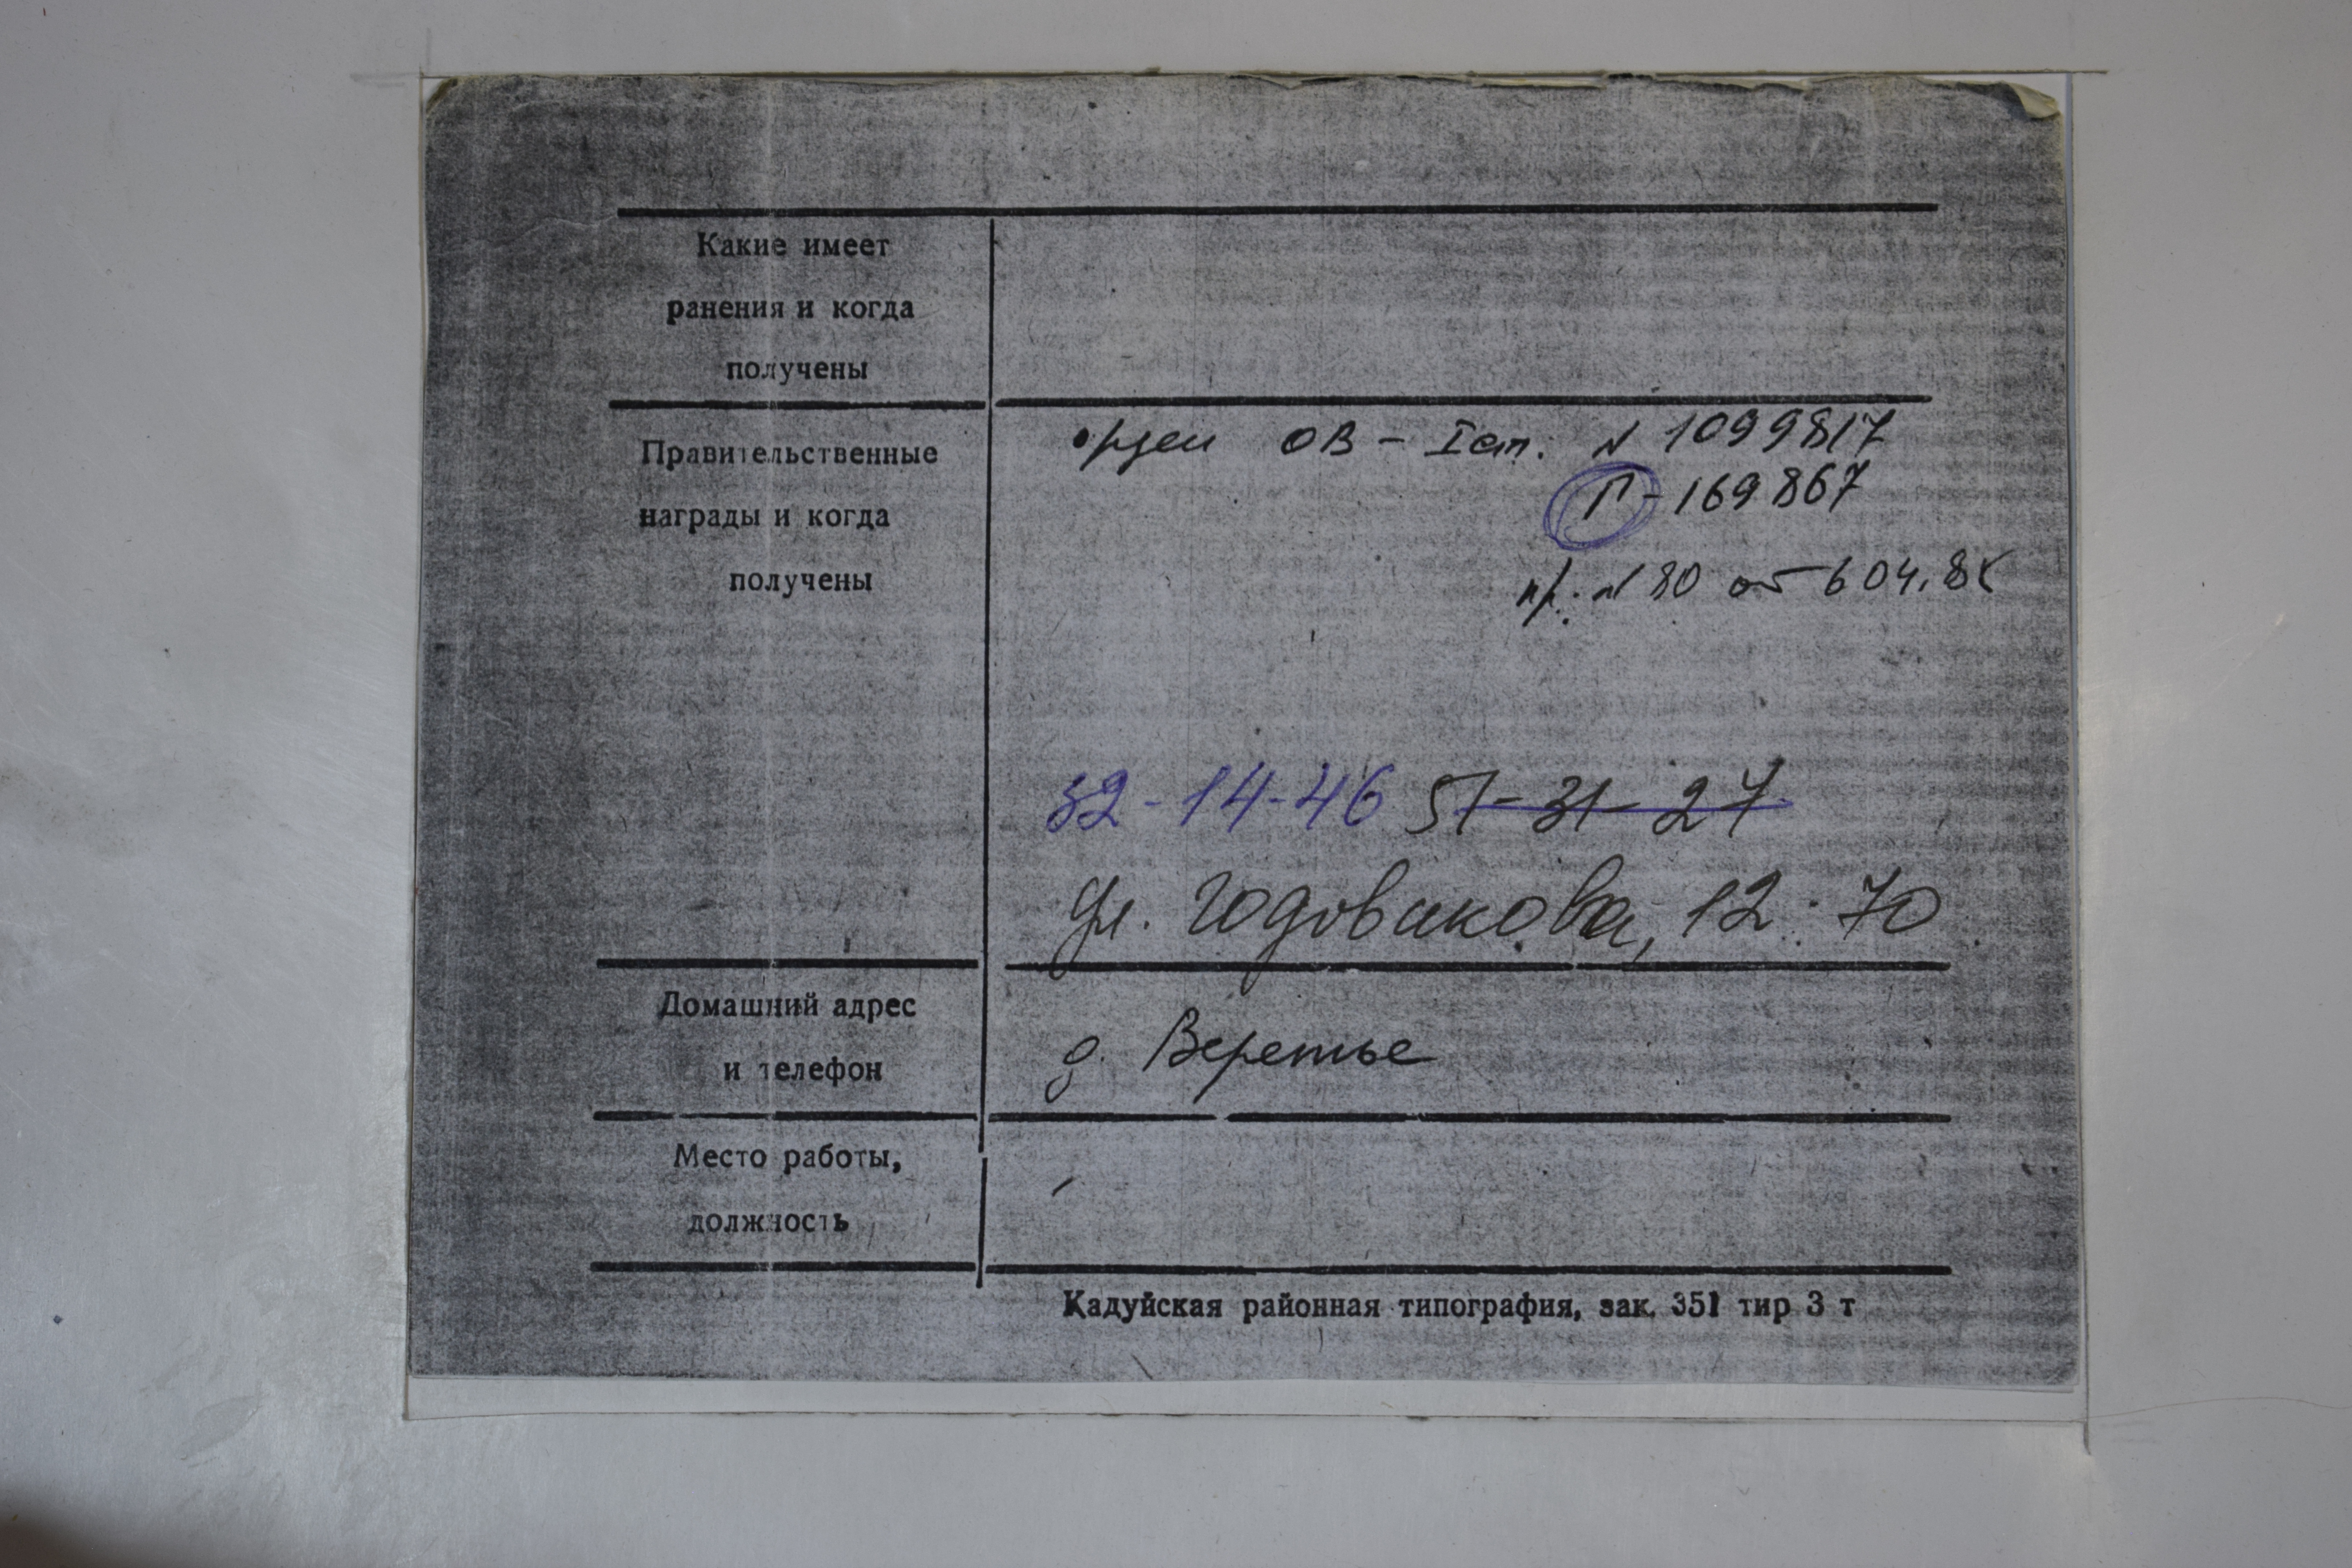 Какие имеет
ранения и когда
получены
Правительственные
награды и когда
получены
орден ОВ - I ст. N 1099817
П - 169867
пр. N 80 от 6 04. 85
32-14-46 51-31-27
ул. Годовикова, 12 : 70
Домашний адрес
и телефон
д. Веретье
Место работы,
должность
Кадуйская районная типография, зак. 351 тир 3 т